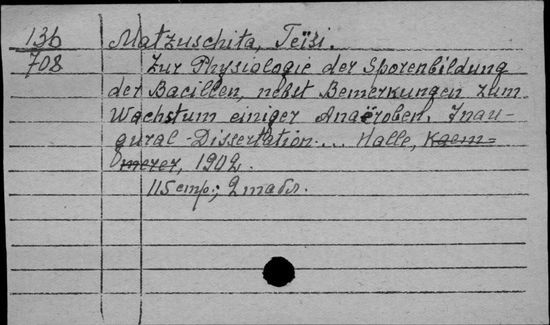 136 Matzuschita, Teïsi.
708 Zur Physiologie der Sporenbildung
der Bacillen, nebst Bemerkungen zum
Wachstum einiger Anaëroben. Inau-
gural-Dissertation... Halle, Kaem-
merer, 1902.
115 стр.; 2 табл.